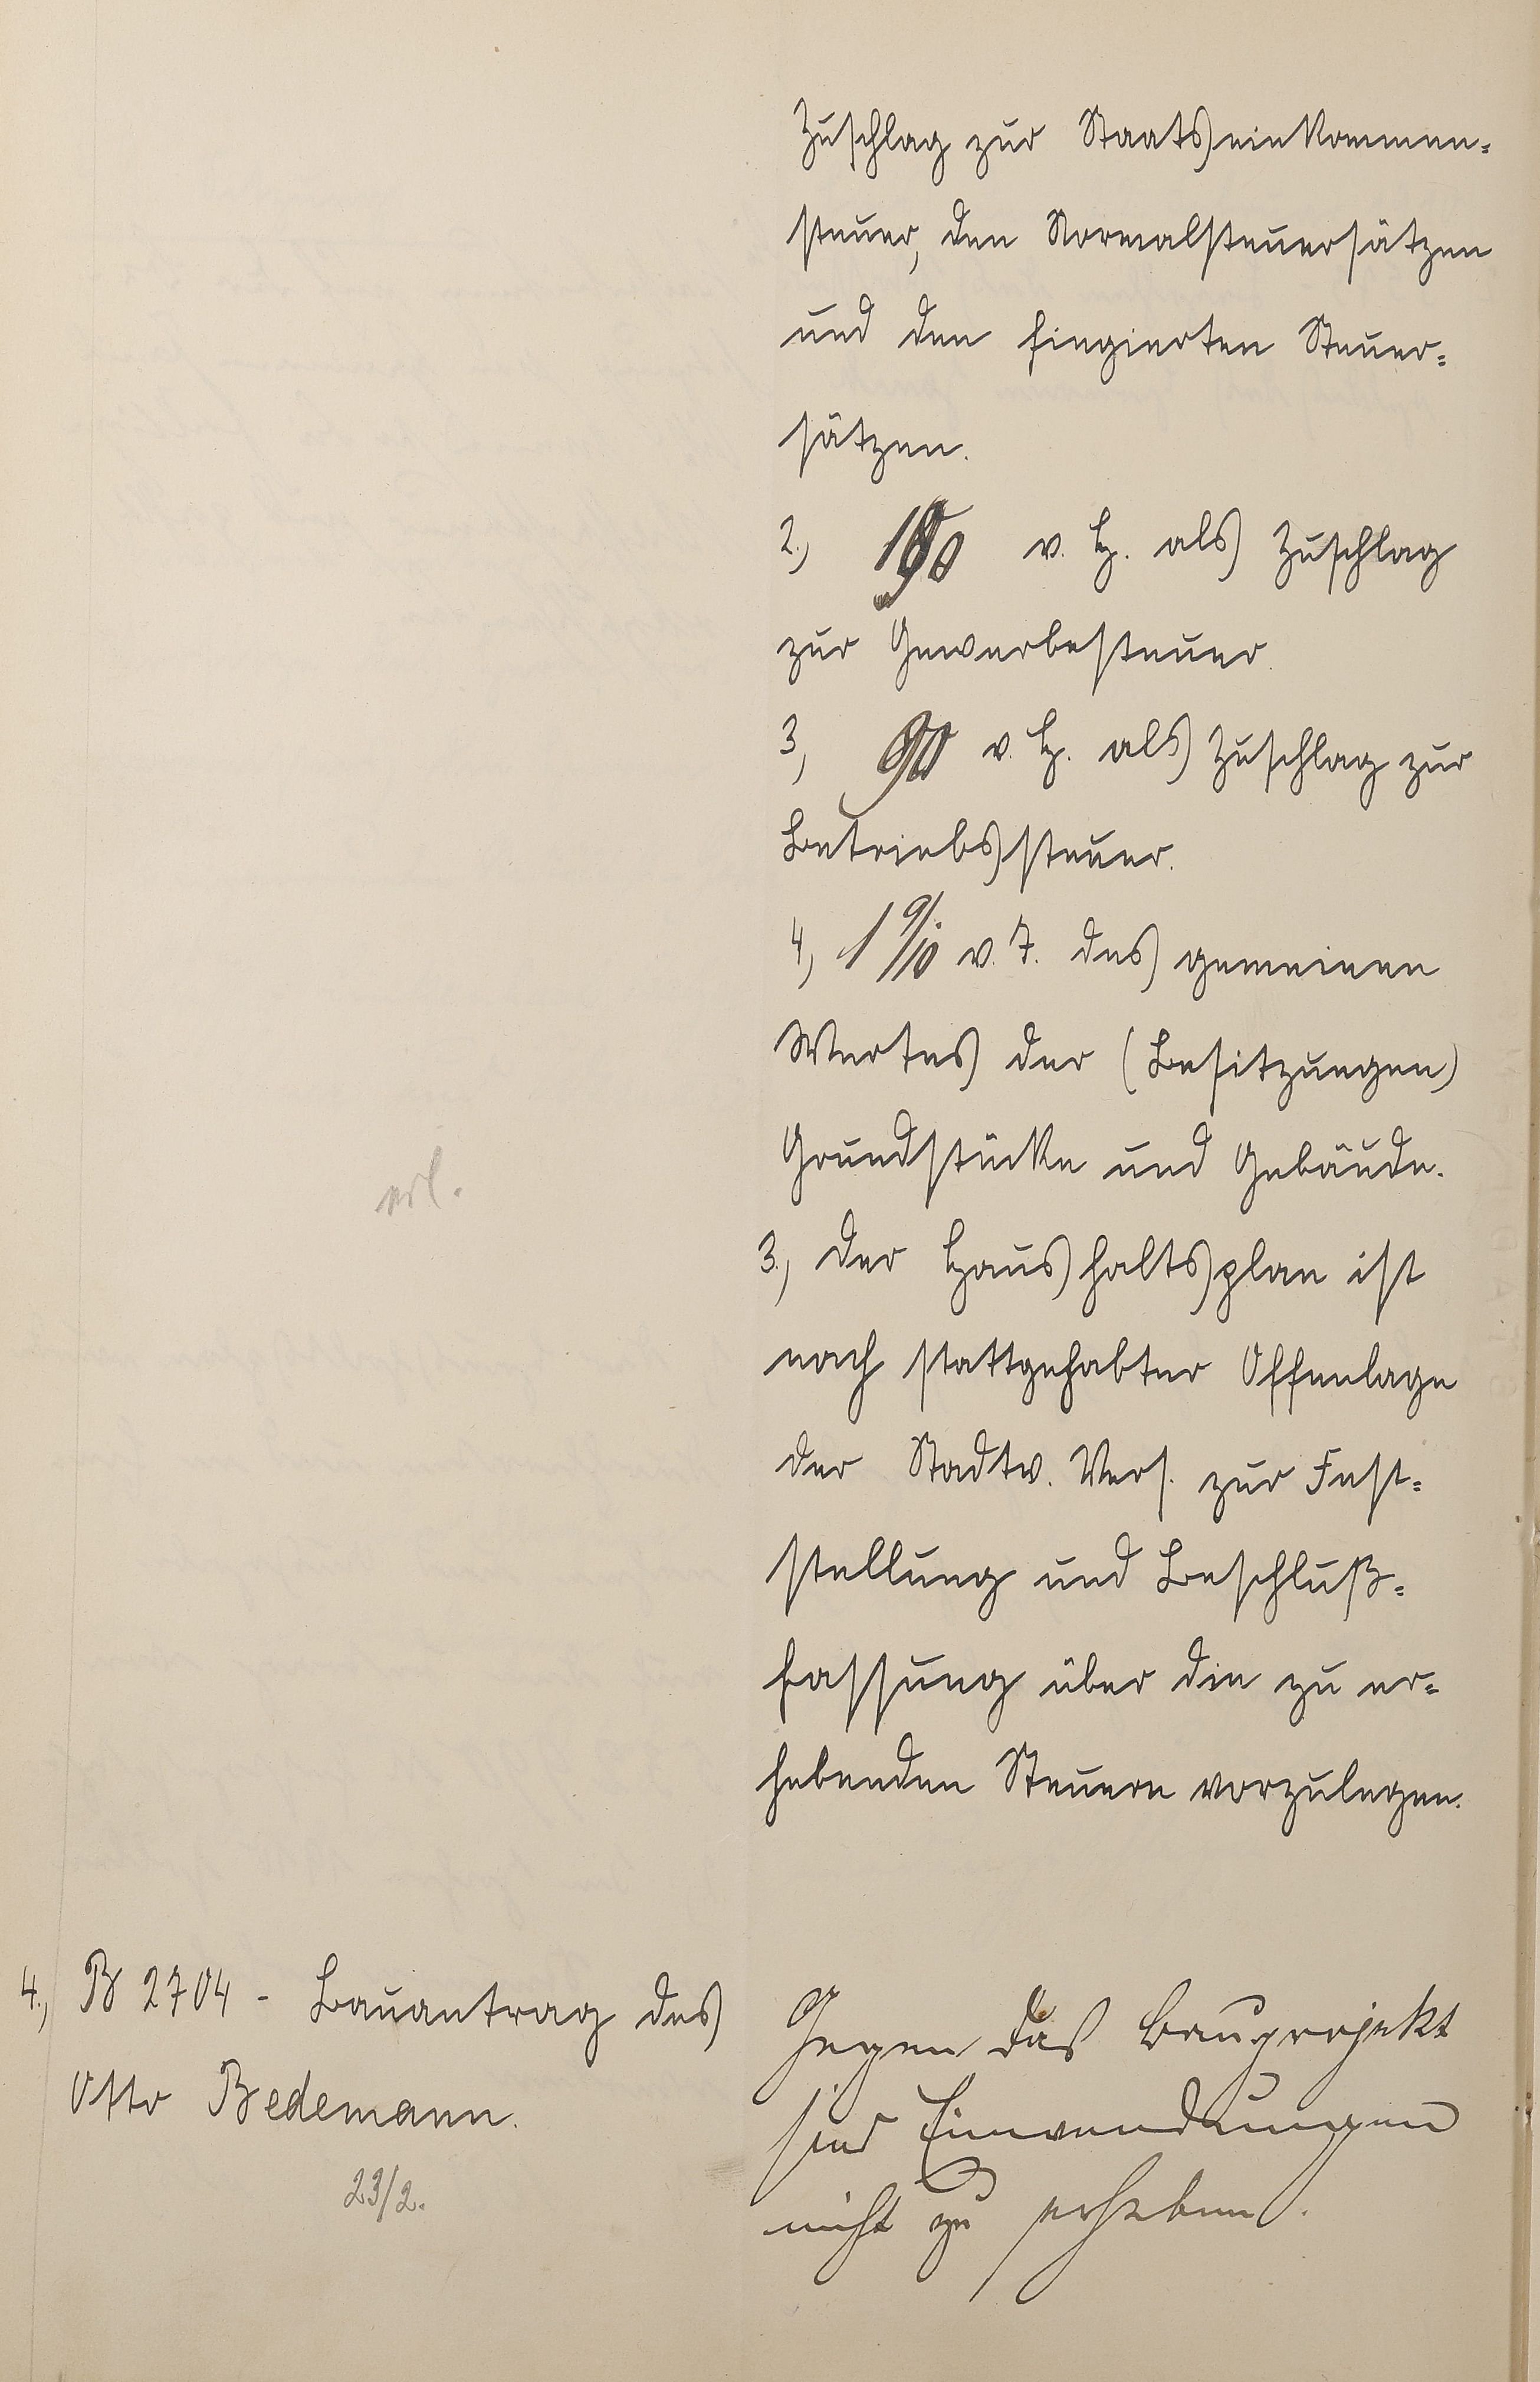 Zuschlag zur Staatseinkommen=
steuer, den Normalsteuersätzen
und den fingierten Steuer=
sätzen.
2.) 190 v. H. als Zuschlag
zur Gewerbesteuer.
3, 90 v. H. als Zuschlag zur
Betriebssteuer.
4, 1 9/10 v. T. des gemeinen
Wertes der (Besitzungen)
Grundstücke und Gebäude.
erl.
3., Der Haushaltsplan ist
nach stattgehabter Offenlage
der Stadtv. Vers. zur Fest=
stellung und Beschluß=
fassung über die zu er=
hebenden Steuern vorzulegen.
4., B 2704 - Bauantrag des
Otto Bedemann.
23/2.
Gegen das Bauprojekt
sind Einwendungen
nicht zu erheben.